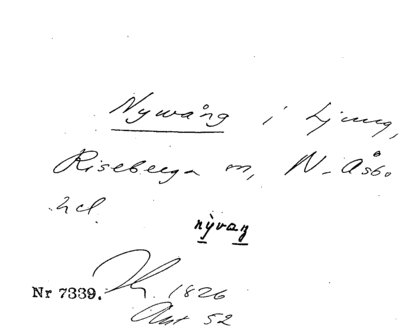 Nywång i Ljung,
Riseberga sn, N. Åsbo
hd.
nỳvaŋ
Nr 7339. 1826
Ant 52